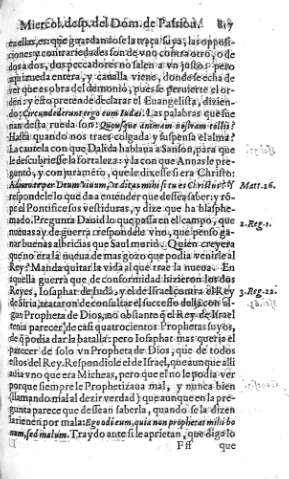 Miercol. desp. del Dom. de Passion. 817
en ellas, es: que guardando se la traça suya, las opposi-
ciones y contrariedades son de vno contra otro, o de
dos a dos, dos peccadores no salen a vn justo: pero
aqui rueda entera, y canalla viene, donde se echa de
ver que es obra del demonio, pues se peruierte el or-
den: y esto pretende declarar el Euangelista, dizien-
do: Circundederunt ergo eum Iudæi. Las palabras que fue
ron desta rueda son: Quousque animam nostram tollis?
Hasta quando nos traes colgada y suspensa el alma?
La cautela con que Dalida hablaua a Sanson, para que
le descubriesse la fortaleza: y la con que Annas le pre-
guntò, y con juramẽto, que le dixesse si era Christo:
Adiuro te per Deum viuum, vt dicas mihi si tu es Christus? y Matt. 26.
respondele lo que da a entender que dessea saber: y rõ-
pe el Pontifice sus vestiduras, y dize que ha blasphe-
mado. Pregunta Dauid lo que passa en el campo, que
nueuas ay de guerra: responde le vno, que penso ga- 2. Reg. 1.
nar buenas albricias que Saul murio. Quien creyera
que no era la nueua de mas gozo que podia venirle al
Rey? Manda quitar la vida al que trae la nueua. En
aquella guerra que de conformidad hizieron los dos
Reyes, Iosaphat de Iuda, y el de Israel contra el Rey 3. Reg. 22.
de Siria, trataron de consultar el successo della con al-
gun Propheta de Dios, no obstante que el Rey de Israel
tenia parecer de casi quatrocientos Prophetas suyos,
de q̃ podia dar la batalla: pero Iosaphat mas queria el
parecer de solo vn Propheta de Dios, que de todos
estos del Rey. Respondiole el de Israel, que aunque alli
auia vno que era Micheas, pero que el no le podia ver
porque siempre le Prophetizaua mal, y nunca bien
(llamando mal al dezir verdad) que aunque en la pre-
gunta parece que dessean saberla, quando se la dizen
la tienen por mala: Ego odi eum, quia non prophetat mihi bo
num, sed malum. Traydo ante si le aprietan, que diga lo
Fff que